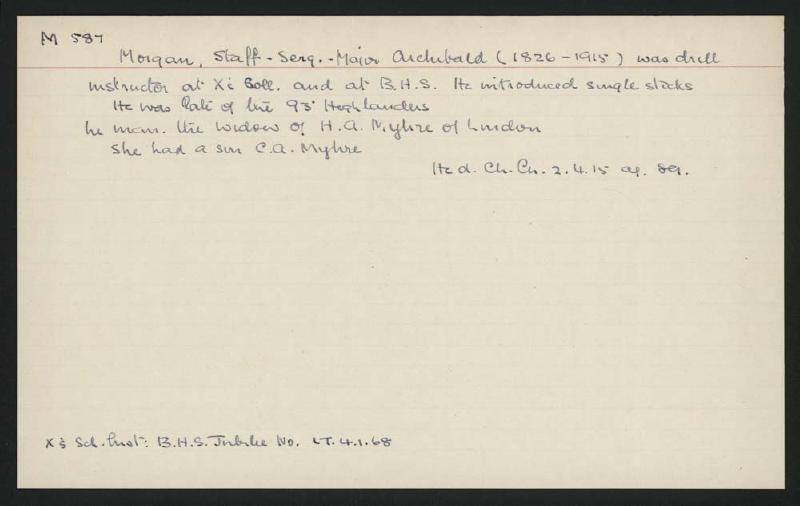 M 587
Morgan, Staff-Serg.-Major Archibald (1826-1915) was drill
instructor at X's Coll. and at B.H.S. He introduced single sticks
He was late of the 93' Highlanders
he marr. the widow of H.A. Myhre of London
She had a son C.A. Myhre
He d. Ch.Ch. 2.4.15 ag. 89.
X's Sch. hist: B.H.S. Jubilee No. LT. 4.1.68